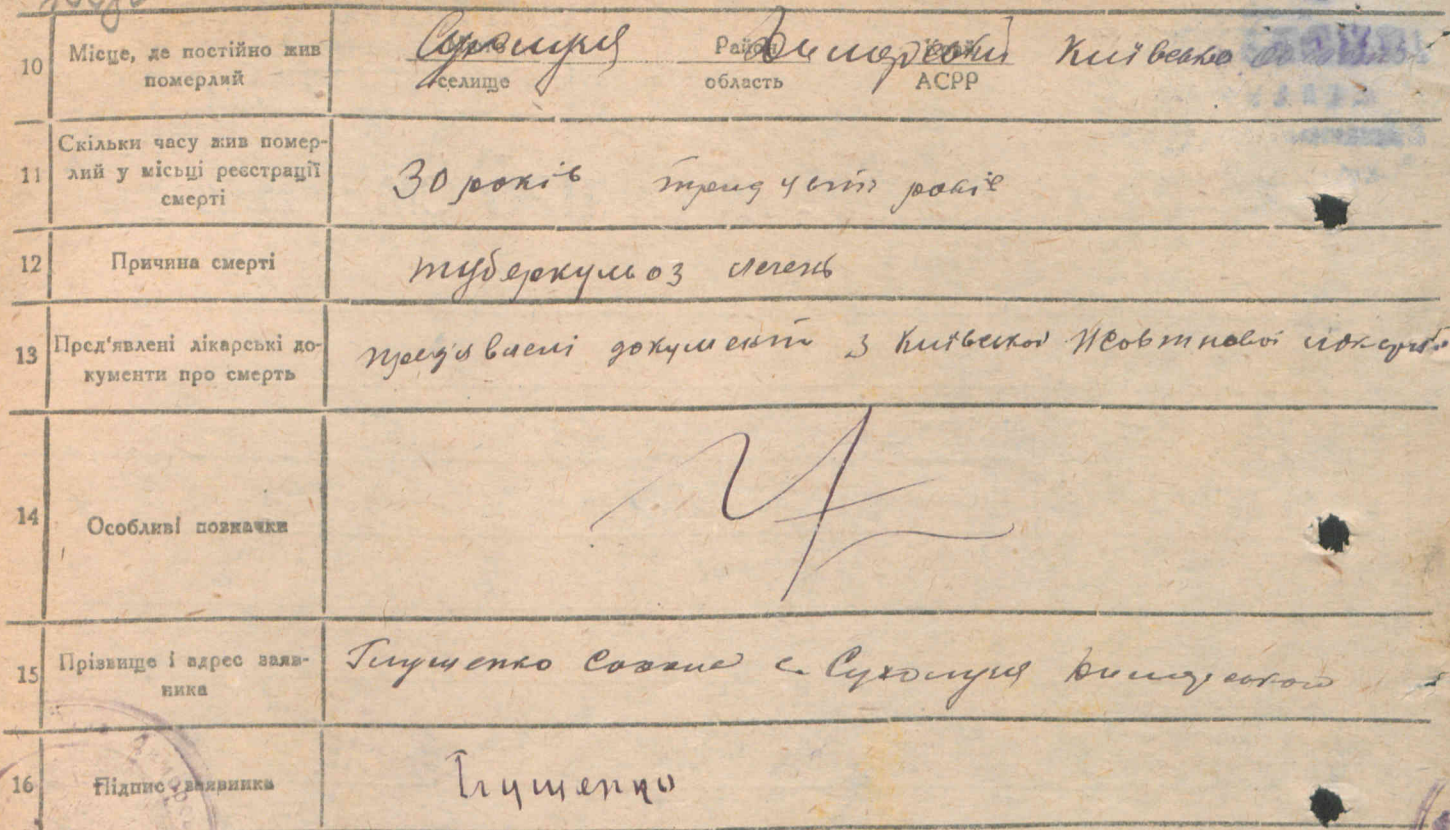 10 Місце, де постійно жив померлий
Сухолуччя Район Димерський Київсько
селище область АСРР
11 Скільки часу жив помер-
лий у місьці реєстрації
смерті
30 років тридчять років
12 Причина смерті
туберкульоз легень
13 Пред'явлені лікарські до-
кументи про смерть
предявлені документи з Київської Жовтневої лікарні
14 Особливі позначки
15 Прізвище і адрес заяв-
ника
Глущенко с. Сухолуччя Димерського
16 Підпис заявника
Глущенко